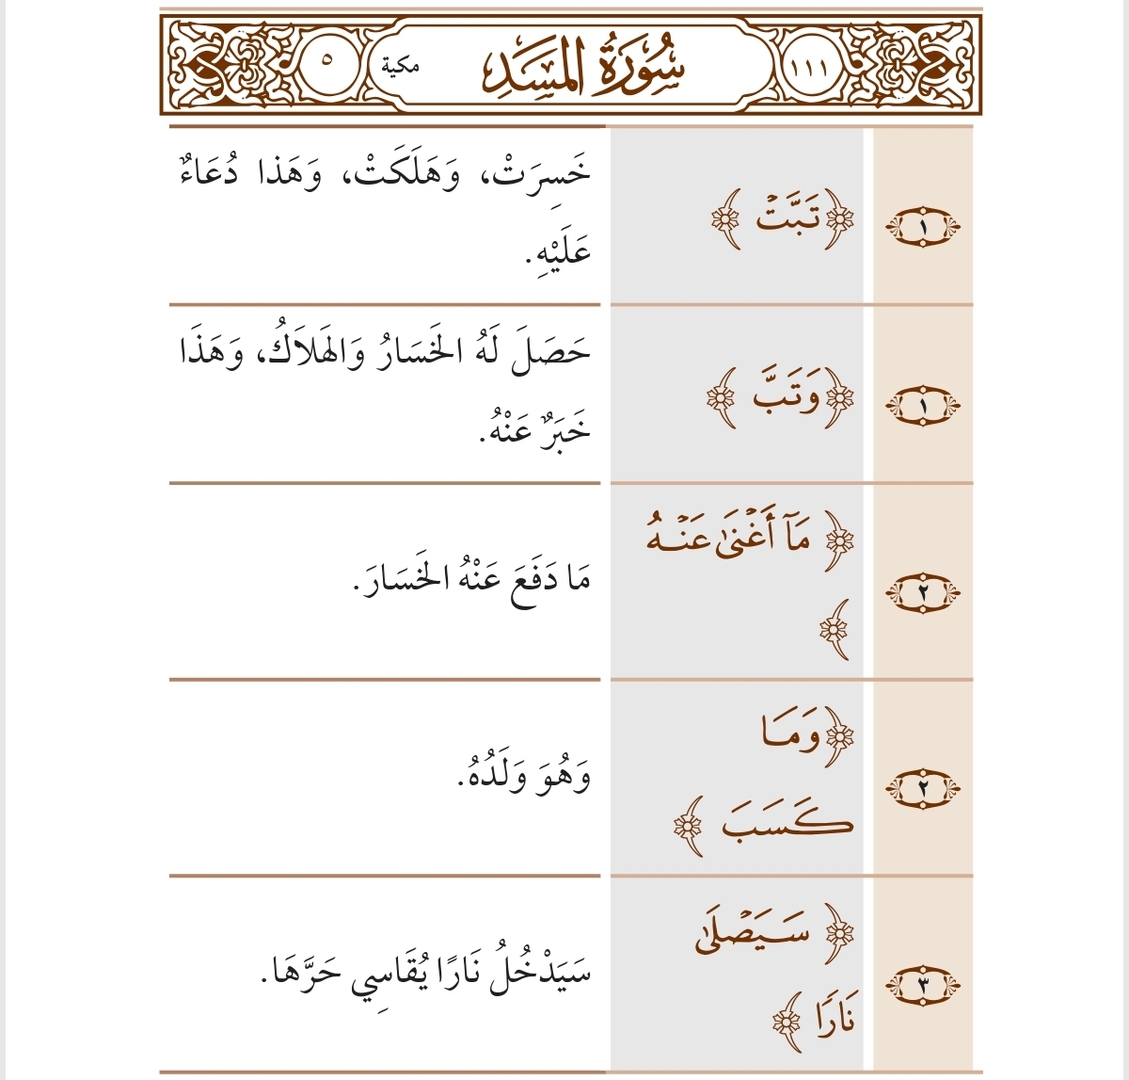 ١١١ سُورَةُ المَسَدِ مكية ٥
١ ﴿تَبَّتۡ ﴾ خَسِرَتْ، وَهَلَكَتْ، وَهَذا دُعَاءٌ
عَلَيْهِ.
١ ﴿وَتَبَّ ﴾ حَصَلَ لَهُ الخَسَارُ وَالهَلاَكُ، وَهَذَا
خَبَرٌ عَنْهُ.
٢ ﴿ مَآ أَغۡنَىٰ عَنۡهُ
﴾ مَا دَفَعَ عَنْهُ الخَسَارَ.
٢ ﴿وَمَا
كَسَبَ ﴾ وَهُوَ وَلَدُهُ.
٣ ﴿ سَيَصۡلَىٰ
نَارٗا ﴾ سَيَدْخُلُ نَارًا يُقَاسِي حَرَّهَا.